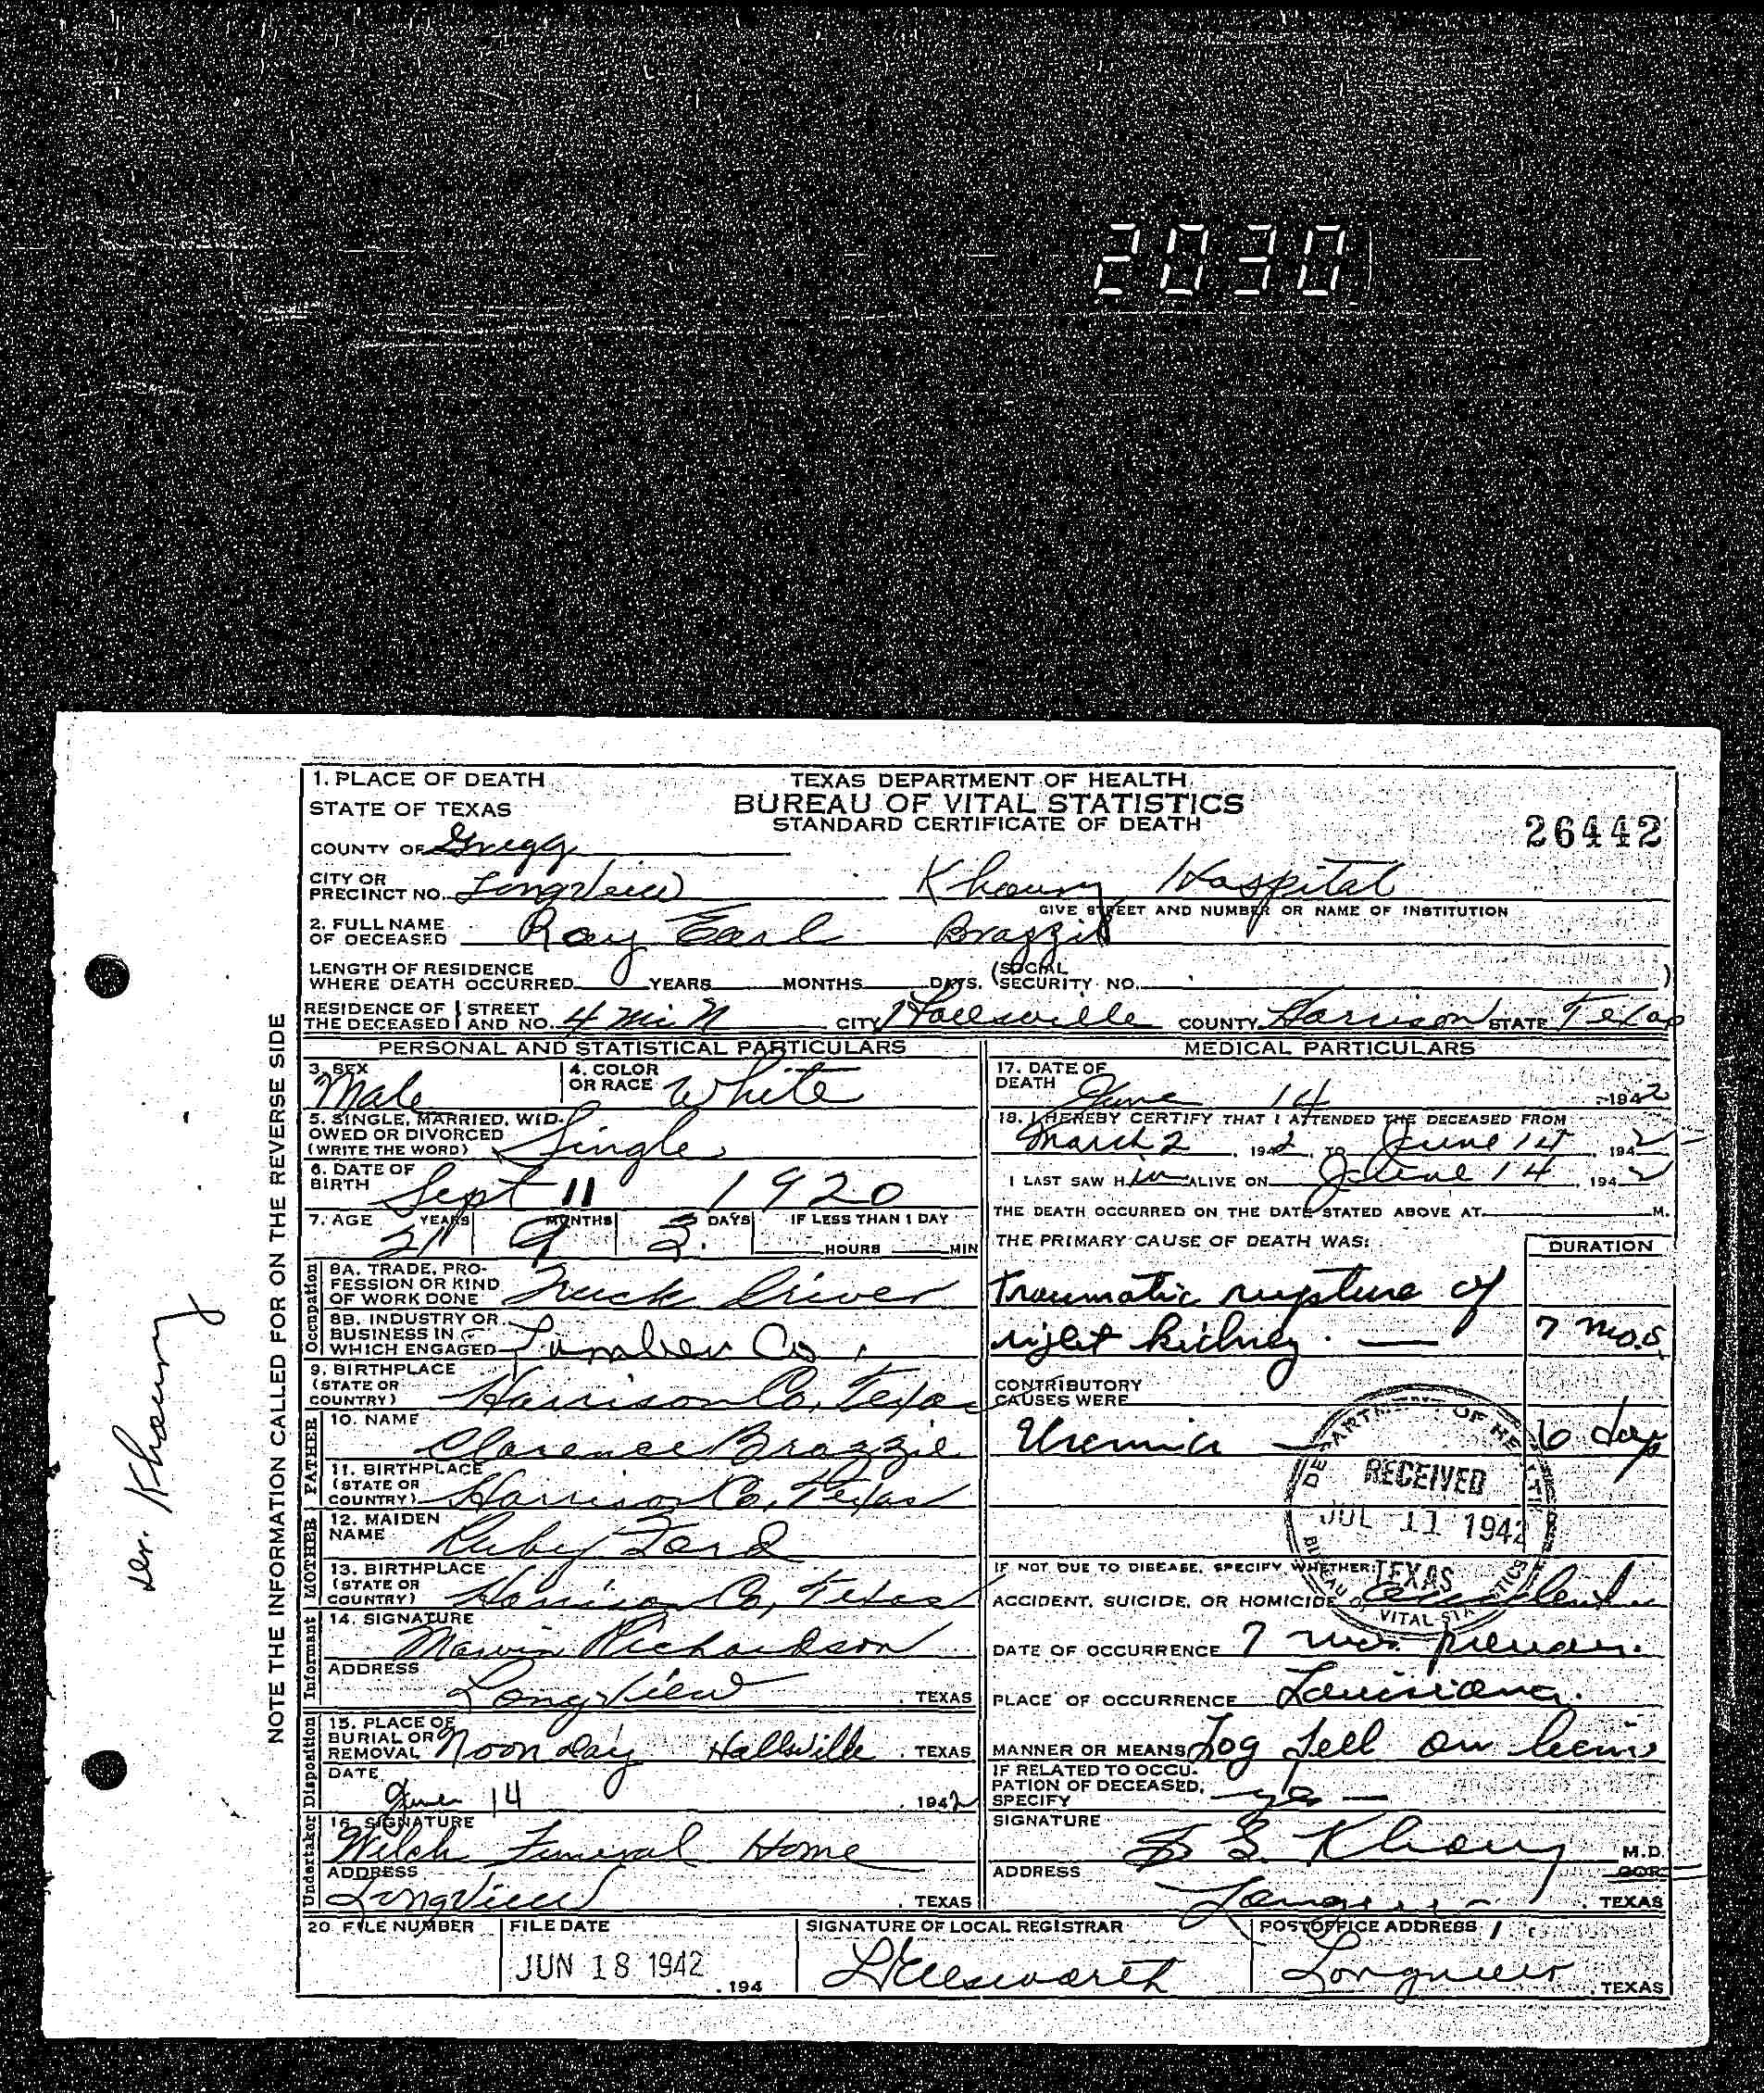 2030
1. PLACE OF DEATH
STATE OF TEXAS
TEXAS DEPARTMENT OF HEALTH
BUREAU OF VITAL STATISTICS
STANDARD CERTIFICATE OF DEATH
26442
COUNTY OF Gregg
CITY OR PRECINCT NO. Longview Khoury Hospital
GIVE STREET AND NUMBER OR NAME OF INSTITUTION
2. FULL NAME OF DECEASED Ray Earl Brazzil
LENGTH OF RESIDENCE
WHERE DEATH OCCURRED YEARS MONTHS DAYS. (SOCIAL SECURITY NO. )
RESIDENCE OF THE DECEASED STREET AND NO. 4 Mi N CITY Hallsville COUNTY Harrison STATE Texas
PERSONAL AND STATISTICAL PARTICULARS
3. SEX Male
4. COLOR OR RACE White
5. SINGLE, MARRIED, WIDOWED OR DIVORCED
(WRITE THE WORD) Single
6. DATE OF BIRTH Sept 11 1920
7. AGE YEARS MONTHS DAYS IF LESS THAN 1 DAY
21 9 3 HOURS MIN
Occupation
8A. TRADE, PROFESSION OR KIND OF WORK DONE Truck Driver
8B. INDUSTRY OR BUSINESS IN WHICH ENGAGED Lumber Co.
9. BIRTHPLACE (STATE OR COUNTRY) Harrison Co, Texas
FATHER
10. NAME Clarence Brazzil
11. BIRTHPLACE (STATE OR COUNTRY) Harrison Co, Texas
MOTHER
12. MAIDEN NAME Ruby Ford
13. BIRTHPLACE (STATE OR COUNTRY) Harrison Co, Texas
Informant
14. SIGNATURE Marvin Richardson
ADDRESS Longview, TEXAS
Disposition
15. PLACE OF BURIAL OR REMOVAL Noonday Hallsville, TEXAS
DATE June 14, 1942
Undertaker
16. SIGNATURE Welch Funeral Home
ADDRESS Longview, TEXAS
MEDICAL PARTICULARS
17. DATE OF DEATH June 14, 1942
18. I HEREBY CERTIFY THAT I ATTENDED THE DECEASED FROM
March 2, 1942, TO June 14, 1942
I LAST SAW H im ALIVE ON June 14, 1942
THE DEATH OCCURRED ON THE DATE STATED ABOVE AT M.
THE PRIMARY CAUSE OF DEATH WAS: DURATION
Traumatic rupture of
right kidney. — 7 mos.
CONTRIBUTORY CAUSES WERE
Uremia — 6 days
DEPARTMENT OF HEALTH
RECEIVED
JUL 11 1942
TEXAS
BUREAU OF VITAL STATISTICS
IF NOT DUE TO DISEASE, SPECIFY WHETHER:
ACCIDENT, SUICIDE, OR HOMICIDE accident
DATE OF OCCURRENCE 7 mos.
PLACE OF OCCURRENCE Louisiana.
MANNER OR MEANS Log fell on him
IF RELATED TO OCCUPATION OF DECEASED, SPECIFY yes —
SIGNATURE Khoury M.D.
ADDRESS Longview, TEXAS
20. FILE NUMBER
FILE DATE JUN 18 1942, 194
SIGNATURE OF LOCAL REGISTRAR
POSTOFFICE ADDRESS Longview, TEXAS
NOTE THE INFORMATION CALLED FOR ON THE REVERSE SIDE
Dr. Khoury